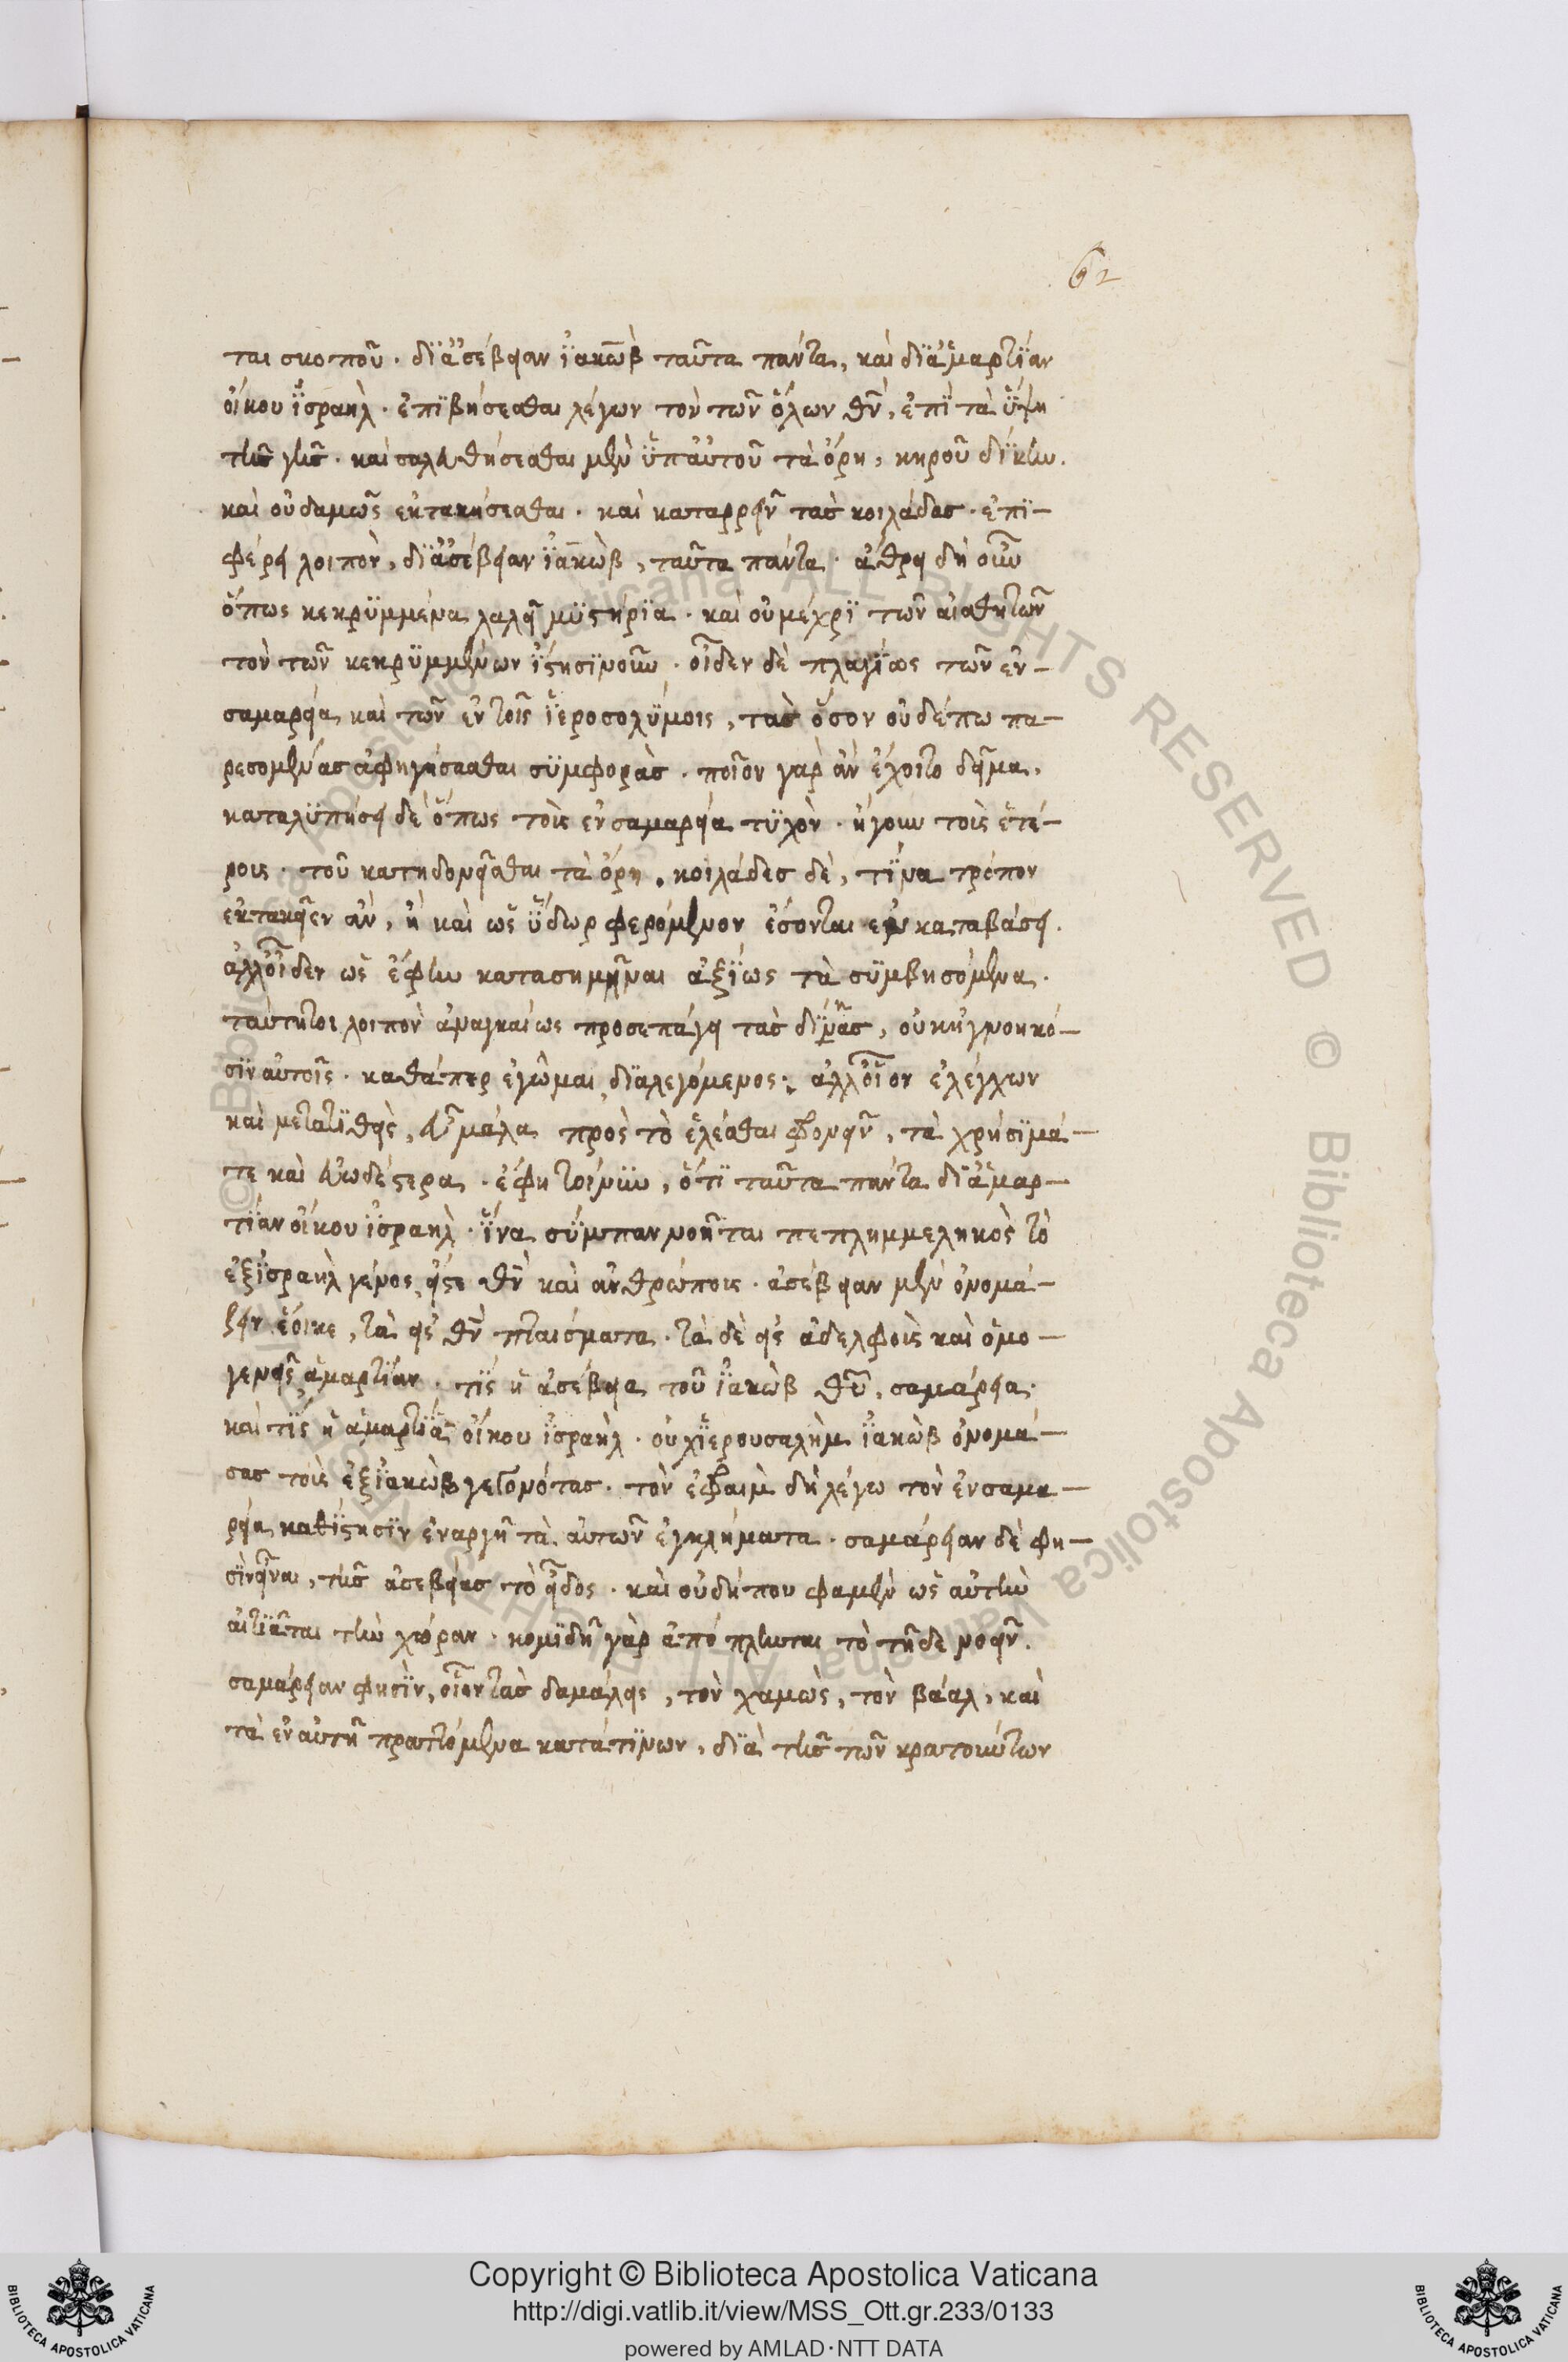 62
ται σκοποῦ. δϊἀσέβειαν ϊἀκὼβ ταῦτα πάντα, καὶ δϊἁμαρτίαν
οἴκου ϊσραηλ. ἐπϊβήσεσθαι λέγων τὸν τῶν ὅλων θν̄, ἐπὶ τὰ ὕψη
τῆς γῆς. καὶ σαλευθήσεσθαι μὲν ὑπαὐτοῦ τὰ ὄρη, κηροῦ δίκην.
καὶ οὐδαμῶς ἐκτακήσεσθαι. καὶ καταρρεῖν τὰς κοιλάδας. ἐπι-
φέρει λοιπὸν, δϊἀσέβειαν ϊἀκὼβ, ταῦτα πάντα. ἄθρει δὴ οὖν
ὅπως κεκρυμμένα λαλεῖ μυστήρια. καὶ οὐ μέχρι τῶν αἰσθητῶν
τὸν τῶν κεκρυμμένων ἵστησϊ νοῦν. οἶδεν δὲ πλαγίως τῶν ἐν-
σαμαρεία καὶ τῶν ἐν τοῖς ἱεροσολύμοις, τὰς ὅσον οὐδέπω πα-
ρεσομένας ἀφηγήσασθαι συμφοράς. ποῖον γὰρ ἂν ἔχοιτο δεῖμα,
καταλυπήσει δὲ ὅπως τοὺς ἐν σαμαρεία τυχὸν. ἤγουν τοὺς ἑτέ-
ρους. τοῦ κατηδονεῖσθαι τὰ ὄρη. κοιλάδες δὲ, τίνα τρόπον
ἐκτακεῖεν ἂν, ἢ καὶ ὡς ὕδωρ φερόμενον ἔσονται ἐν καταβάσει.
ἀλλοἶδεν ὡς ἔφην κατασημῆναι ἀξίως τὰ συμβησόμενα.
ταύτητοι λοιπὸν ἀναγκαίως προσεπάγει τὰς , οὐκ ἠγνοηκό-
σϊν αὐτοῖς. καθάπερ ἐγῷμαι διαλεγόμενος. ἀλλοἷον ἐλέγχων
καὶ μετατιθεὶς, εὖ μάλα πρὸς τὸ ἑλέσθαι φρονεῖν, τὰ χρήσιμά-
τε καὶ εὐωδέστερα. ἔφη τοίνυν, ὅτι ταῦτα πάντα δϊἁμαρ-
τίαν οἴκου ϊσραηλ. ἵνα σύμπαν νοῆται πεπλημμεληκὸς τὸ
ἐξϊσραὴλ γένος, εἴς τε θν̄ καὶ ἀνθρώπους. ἀσέβειαν μὲν ὀνομά-
ζειν ἔοικε, τὰ εἰς θν̄ πταίσματα. τὰ δὲ εἰς ἀδελφοὺς καὶ ὁμο-
γενεῖς ἁμαρτίαν. τίς ἡ ἀσέβεια τοῦ ϊἀκὼβ θῦ, σαμάρεια.
καὶ τίς ἡ ἁμαρτία οἴκου ϊσραὴλ. οὐχϊερουσαλὴμ ϊἀκὼβ ὀνομά-
σας τοὺς ἐξϊακὼβ γεγονότας. τὸν ἐφραὶμ δὴ λέγω τὸν ἐν σαμα-
ρεία καθίστησϊν ἐναργῆ τὰ αὐτῶν ἐγκλήματα. σαμάρειαν δὲ φη-
σϊν εἶναι, τῆς ἀσεβείας τὸ εἶδος. καὶ οὐδήπου φαμὲν ὡς αὐτὴν
αἰτιᾶται τὴν χώραν. κομϊδῆ γὰρ ἀπό πληκται τὸ τῆδε νοεῖν.
σαμάρειαν φησϊν, οἷον τὰς δαμάλεις, τὸν χαμὼς, τὸν βάαλ, καὶ
τὰ ἐν αὐτῆ πραττόμενα κατά τινων, διὰ τῆς τῶν κρατούντων
Copyright © Biblioteca Apostolica Vaticana
http://digi.vatlib.it/view/MSS_Ott.gr.233/0133
powered by AMLAD·NTT DATA
BIBLIOTECA APOSTOLICA VATICANA
BIBLIOTECA APOSTOLICA VATICANA
© Biblioteca Apostolica Vaticana ALL RIGHTS RESERVED